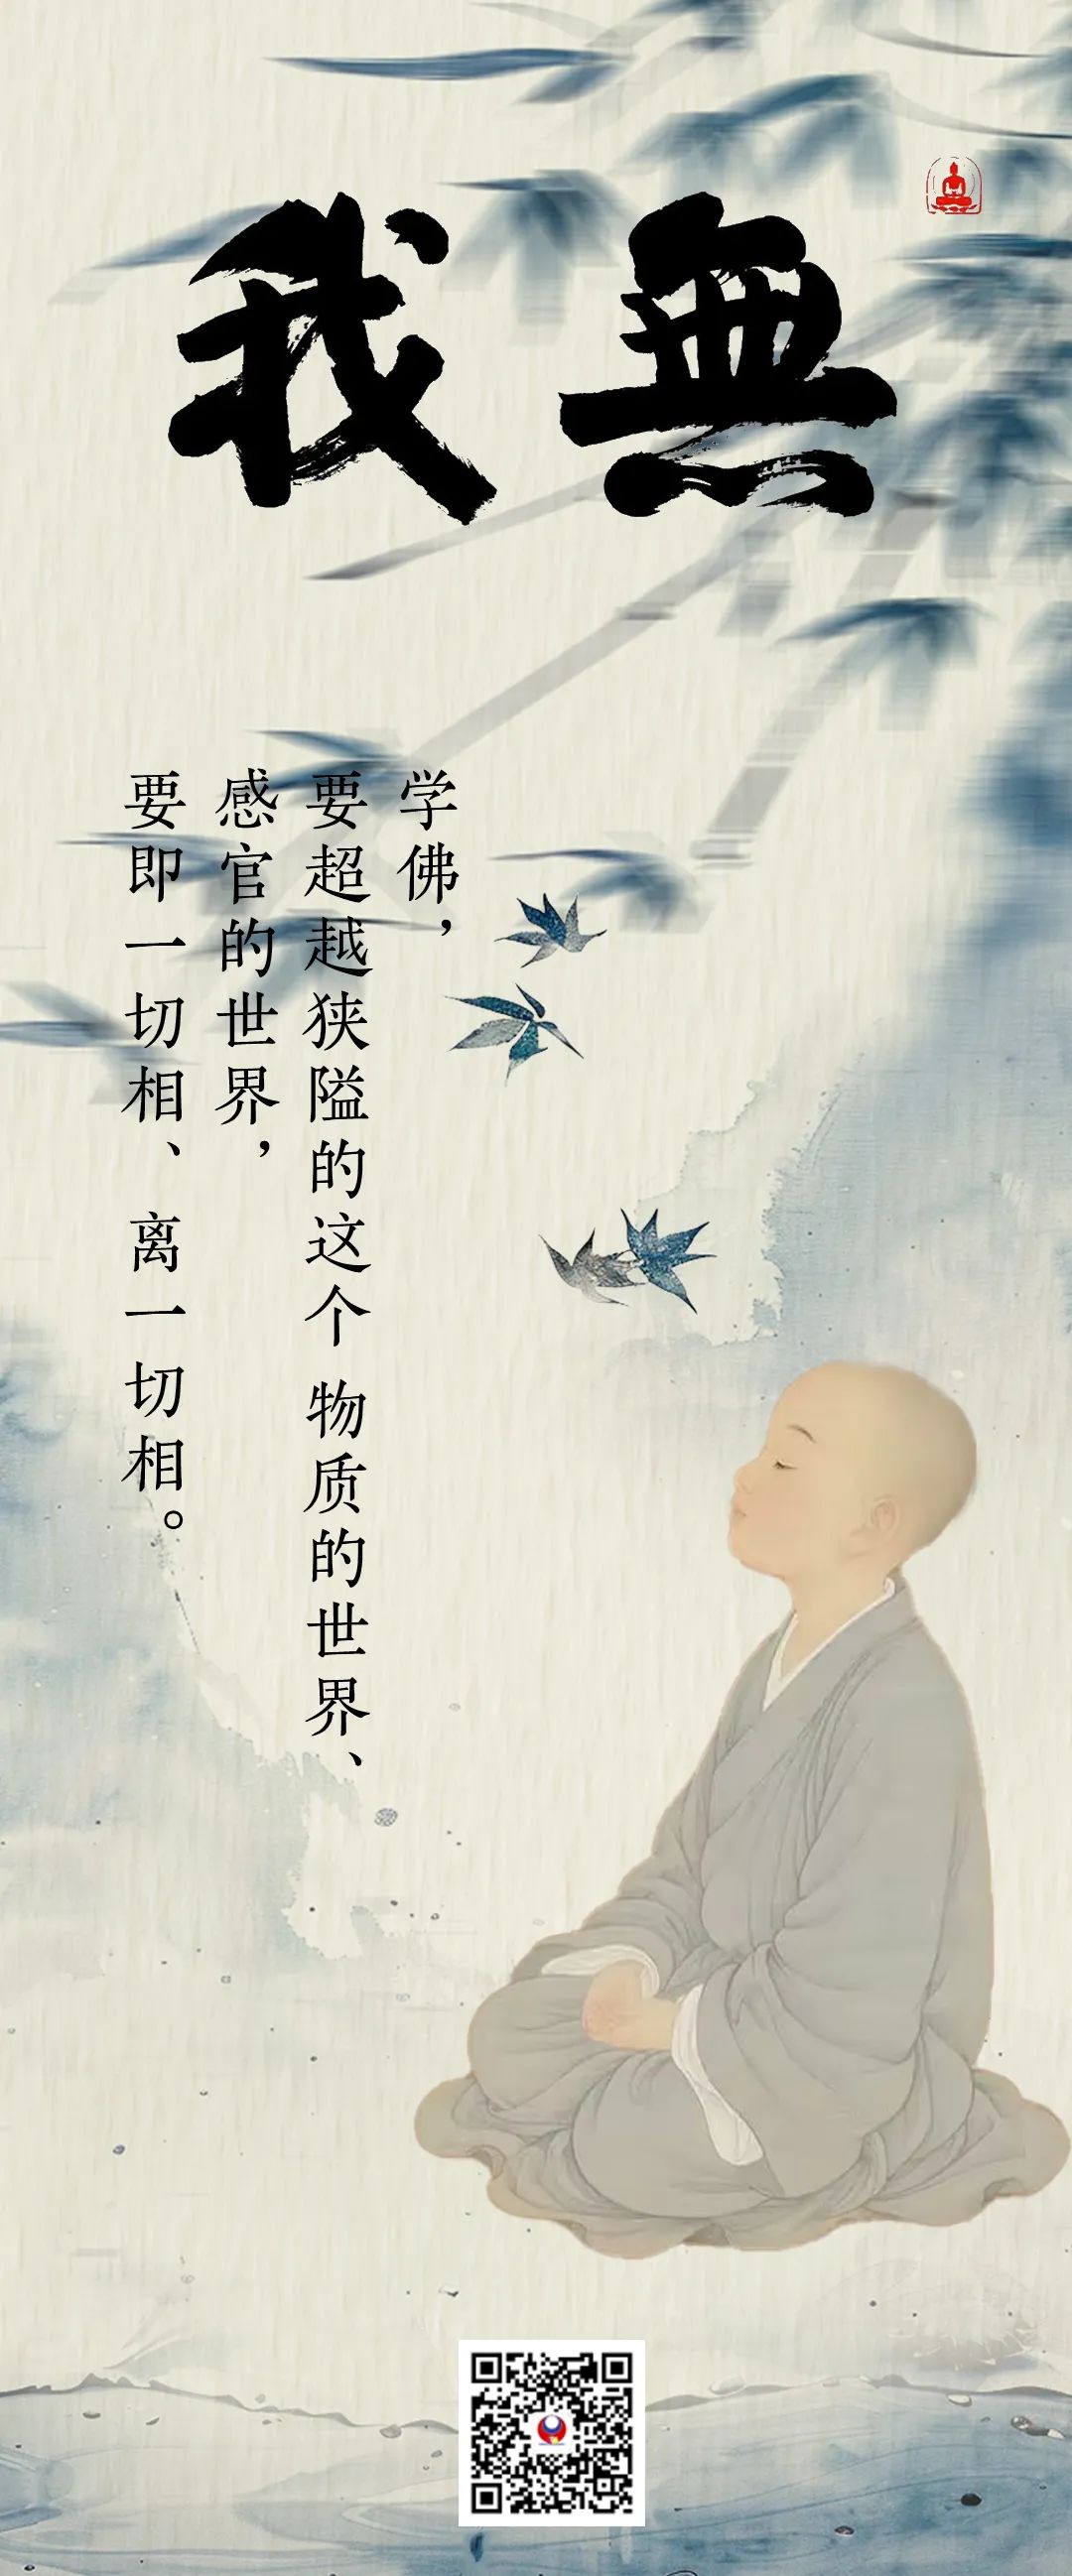 無我
学佛，
要超越狭隘的这个物质的世界、
感官的世界，
要即一切相、离一切相。